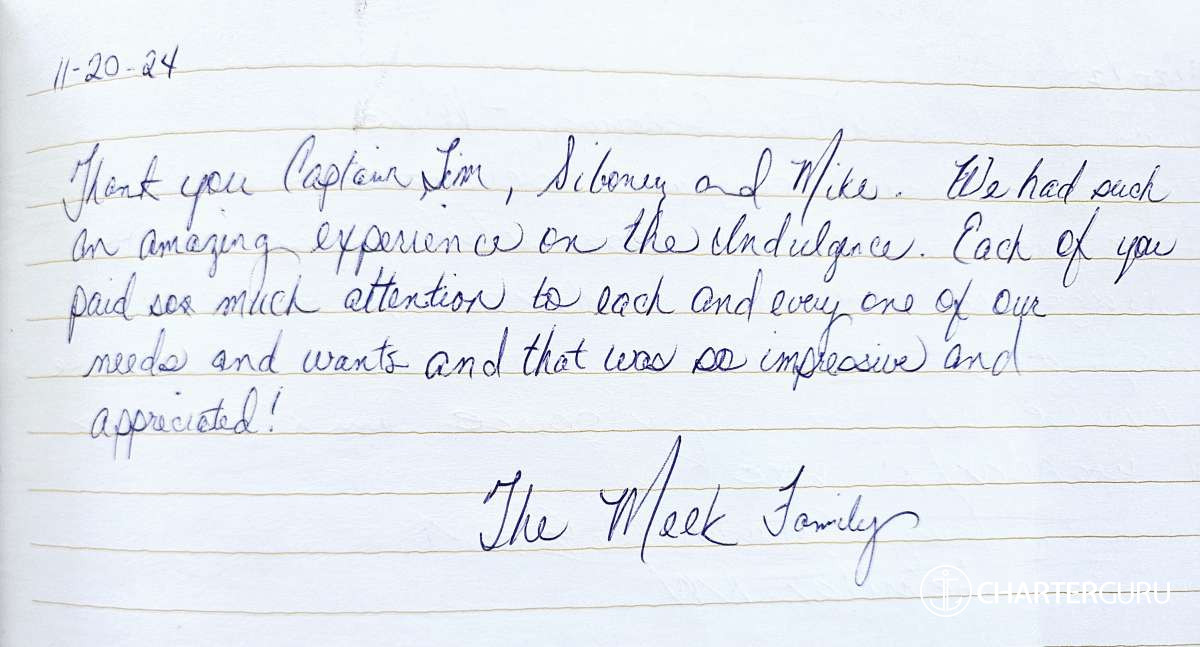 11-20-24
Thank you Captain Jim, Siboney and Mike. We had such
an amazing experience on the Indulgence. Each of you
paid soo much attention to each and every one of our
needs and wants and that was so impressive and
appreciated!
The Meek Family
CHARTERGURU